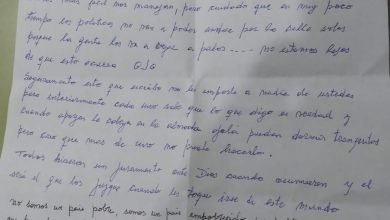 más fácil nos manejan, pero cuidado que en muy poco
tiempo los políticos no van a poder andar por la calle solos
porque la gente los va a bajar a palos .... no estamos lejos
de que esto ocurra OJO
Seguramente esto que escribo no le importe a nadie de ustedes
pero interiormente cada uno sabe que lo que digo es verdad y
cuando apoyen la cabeza en la almohada ojalá puedan dormir tranquilos
pero creo que mas de uno no puede hacerlo.
Todos hicieron un juramento ante Dios cuando asumieron y el
será el que los juzgue cuando les toque irse de este mundo
no somos un país pobre, somos un país empobrecido